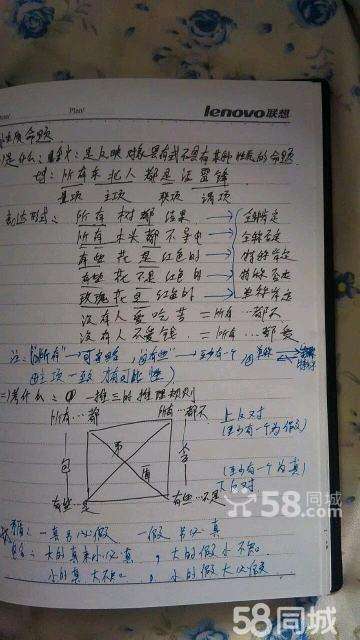 Plan/
lenovo联想
性质命题
是什么：定义：是反映对象具有或不具有某种性质的命题
所有东北人都是活雷锋
量项 主项 联项 谓项
表达形式：所有树都结果 → 全称肯定
所有木头都不导电 → 全称否定
有些花是红色的 → 特称肯定
有些花不是红色的 → 特称否定
玫瑰花是红色的 → 单称肯定
没有人爱吃苦 = 所有…都不
没有人不爱钱 = 所有…都爱
注："所有" → 可省略，"有些" → 至少有一个
考什么：① 一推三的推理规则
所有…都 所有…都不
上反对
(至少有一个为假)
矛
盾
包
含
(至少有一个真)
下反对
有些…是 有些…不是
矛盾：一真另必假 一假另必真
包含：大的真来小必真，大的假小不知
小的真大不知，小的假大必假
58同城
58同城